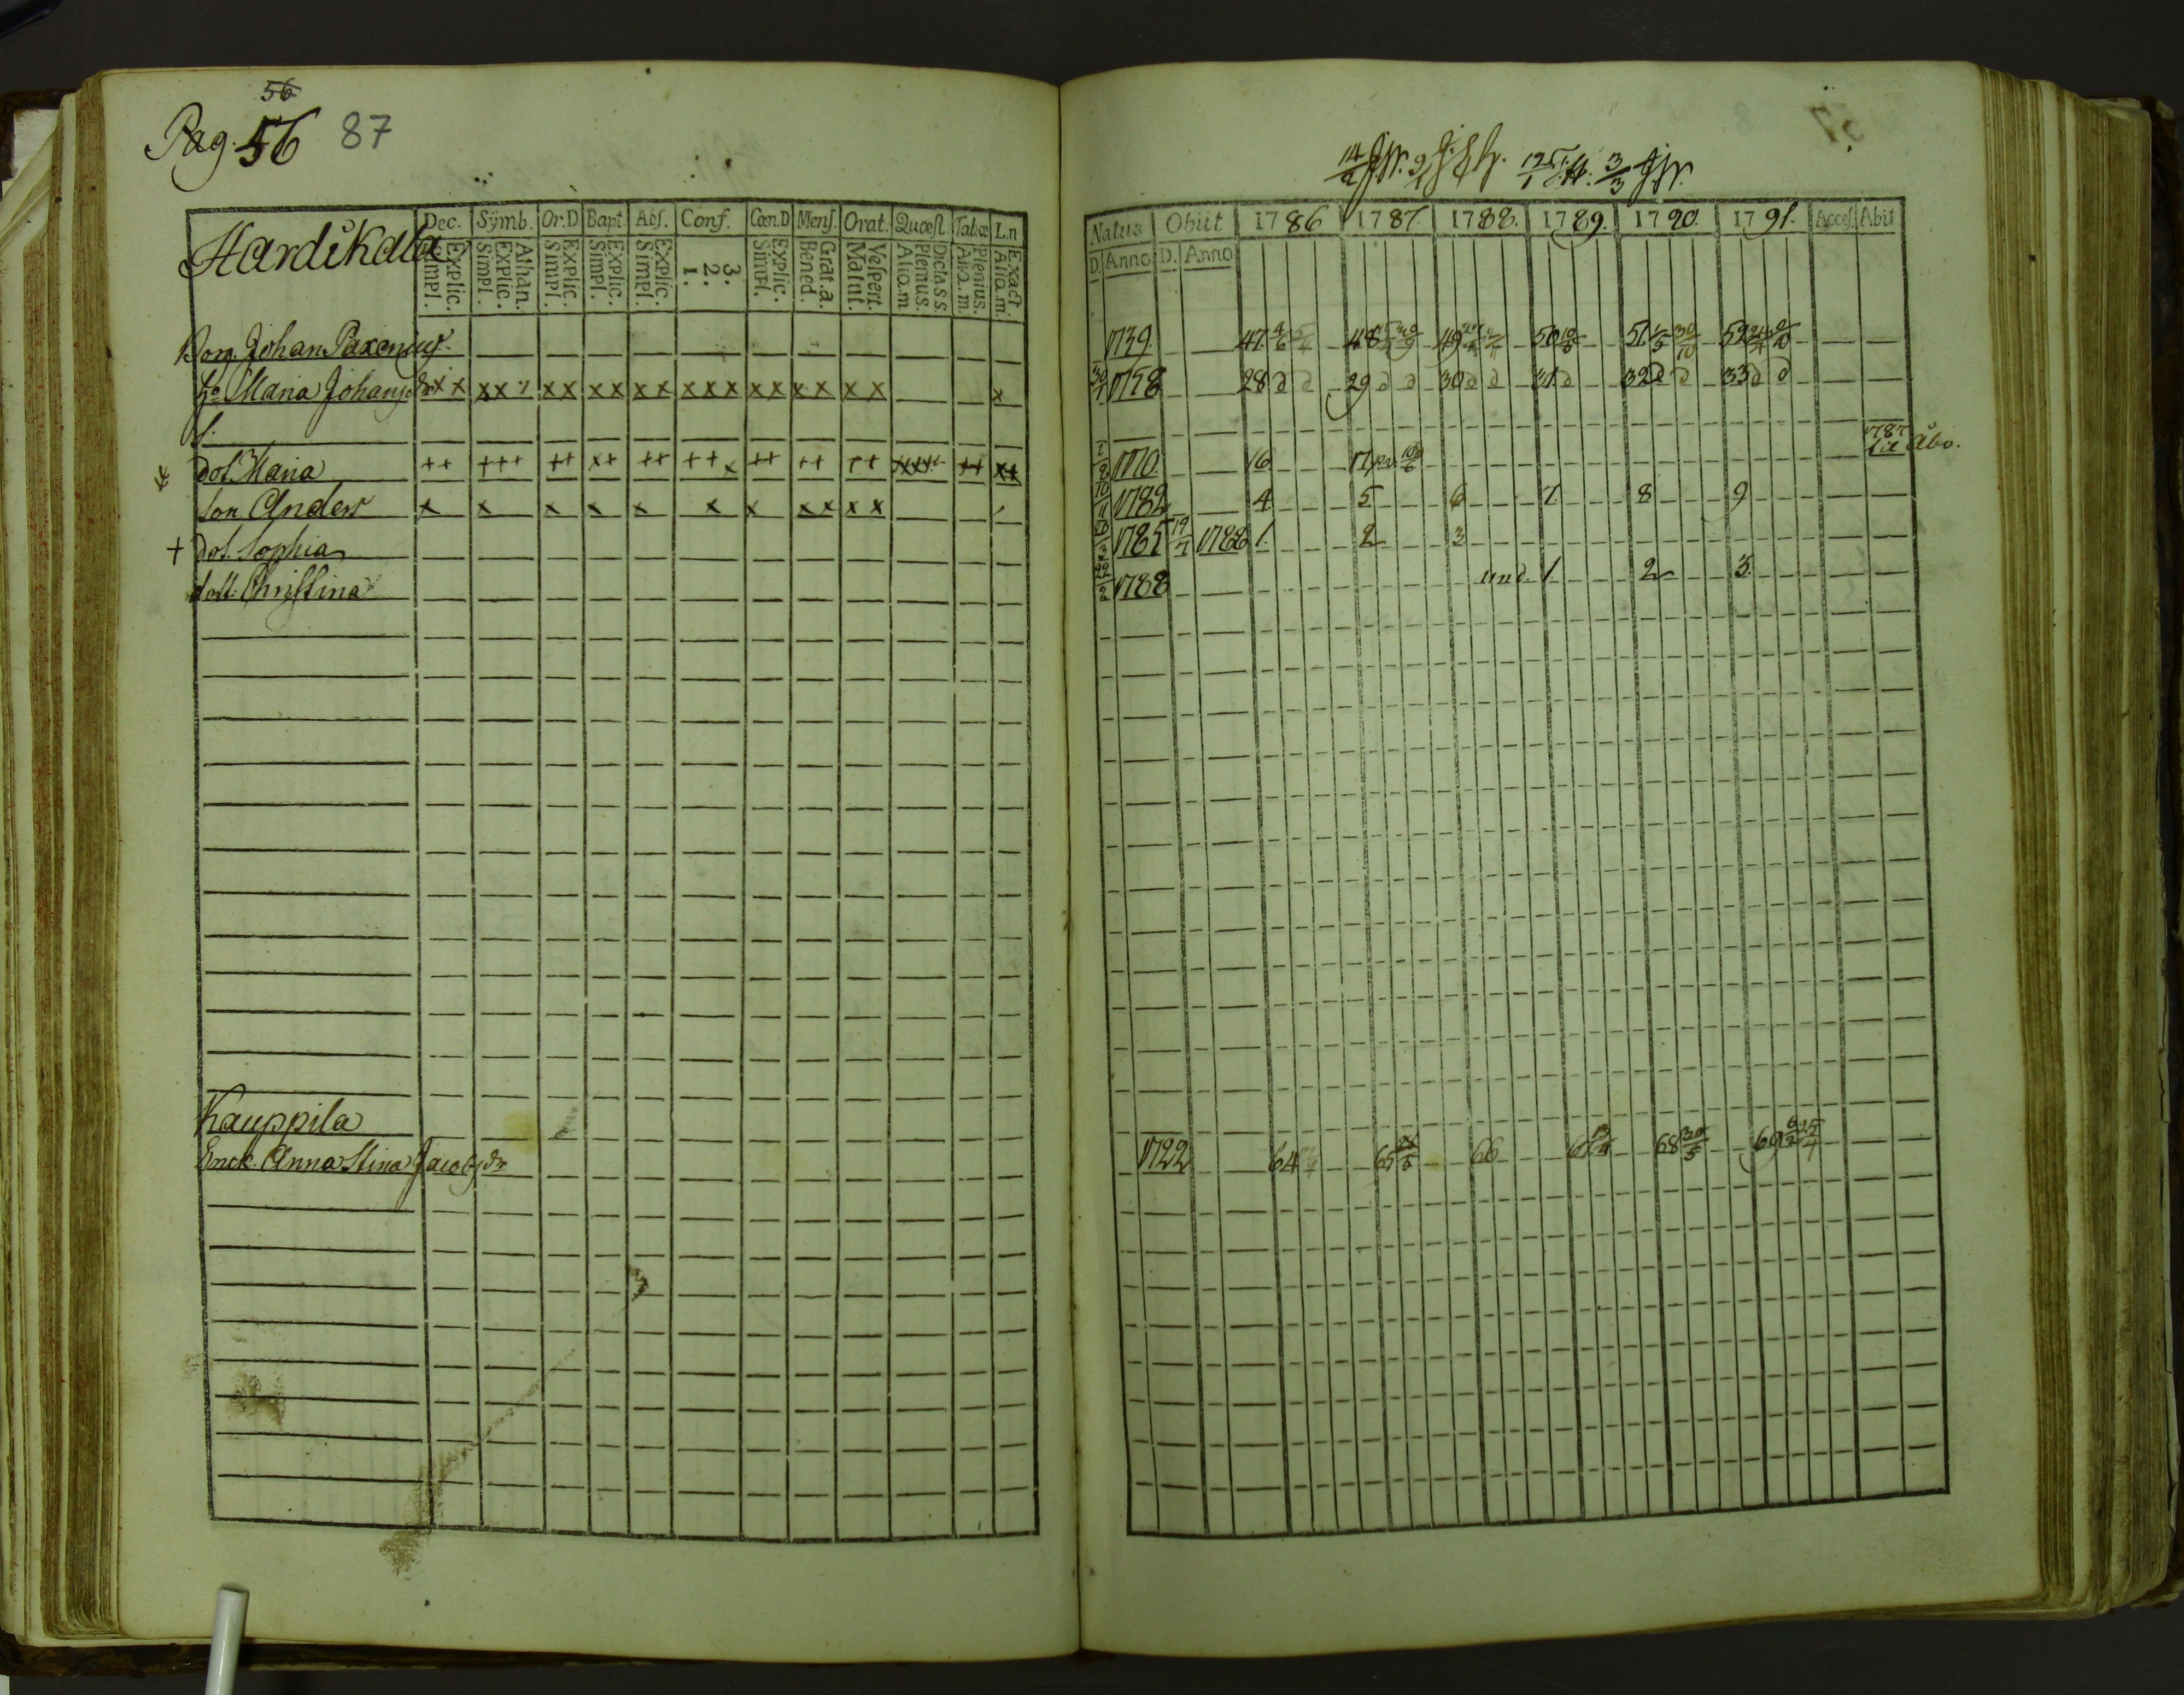 56
Pag. 56 87
Dec. Symb. Or.D Bapt. Abs. Conf. Cœn.D Mens. Orat. Quæst. Tabæ L.n
Hardikala
Explic. Simpl. Athan. Explic. Simpl. Explic. Simpl. Explic. Simpl. Explic. Simpl. 3. 2. 1. Explic. Simpl. Grat.a. Bened. Vespert. Matut. Dictass Plenius. Aliq.m Plenius. Aliq.m. Exact. Aliq.m.
Johan Paxenius
h:o Maria Johansdr x x xx x x x x x x x x x x x x x x x x x
S.
dot. Maria ++ +++ ++ x+ ++ ++x ++ ++ ++ ++ xx
Son Anders x x x x x x x x x x x
+ dot. Sophia
dott: Christina
Kauppila
Enck. Anna Stina Jacobsdr
14/2 3/3
Natus Obiit 1786 1787 1788. 1789. 1790 1791. Acces. Abit
D. Anno D. Anno
1739. 47 48 49 50 51 52
30/4 1758 28 d d 29 d d 30 d d 31 d 32 d d 33 d d
1770 16 17 1787 til Åbo.
10/11 1782 4 5 6 7. 8 9
1785 19/7 1788 1. 2 3
22/2 1788 und. 1 2 3
1722 64 65 66 67 68 69